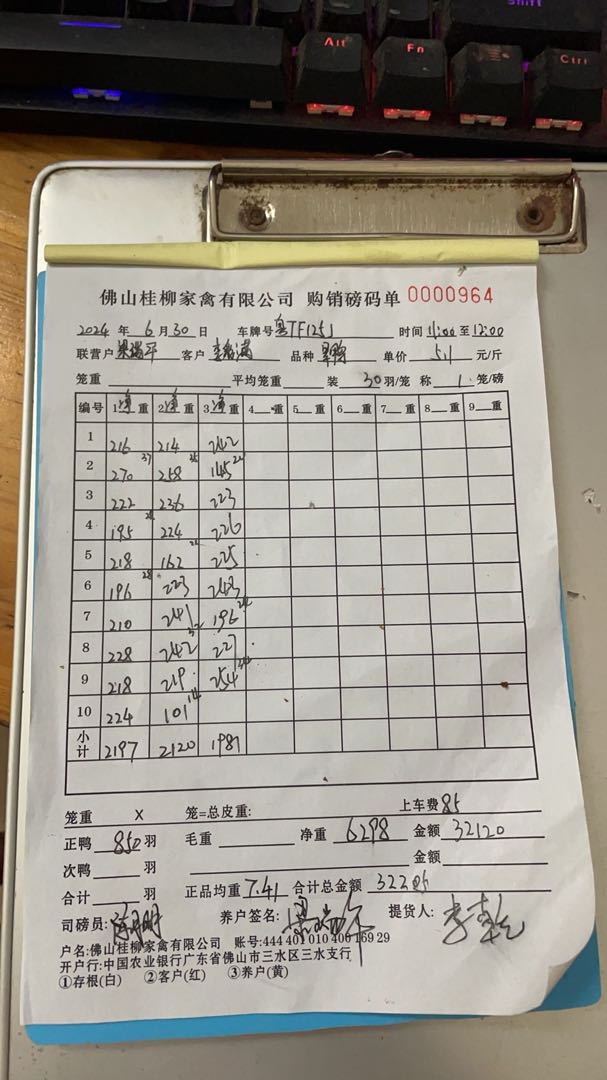 Shift
Alt
Fn
Ctrl
佛山桂柳家禽有限公司 购销磅码单 0000964
2024 年 6 月 30 日 车牌号 粤TF125J 时间 11:00 至 12:00
联营户 客户 品种 单价 5.1 元/斤
笼重 平均笼重 装 30 羽/笼 称 1 笼/磅
编号 1 净 重 2 净 重 3 净 重 4 重 5 重 6 重 7 重 8 重 9 重
1 216 214 242
2 270 258 145
3 222 236 223
4 195 224 226
5 218 162 225
6 196 223 243
7 210 241 196
8 228 242 227
9 218 219 254
10 224 101
小计 2197 2120 1981
笼重 X 笼=总皮重: 上车费 85
正鸭 850 羽 毛重 净重 6298 金额 32120
次鸭 羽 金额
合计 羽 正品均重 7.41 合计总金额 32205
司磅员: 养户签名: 提货人:
户名:佛山桂柳家禽有限公司 账号:444 401 010 400 169 29
开户行:中国农业银行广东省佛山市三水区三水支行
①存根(白) ②客户(红) ③养户(黄)